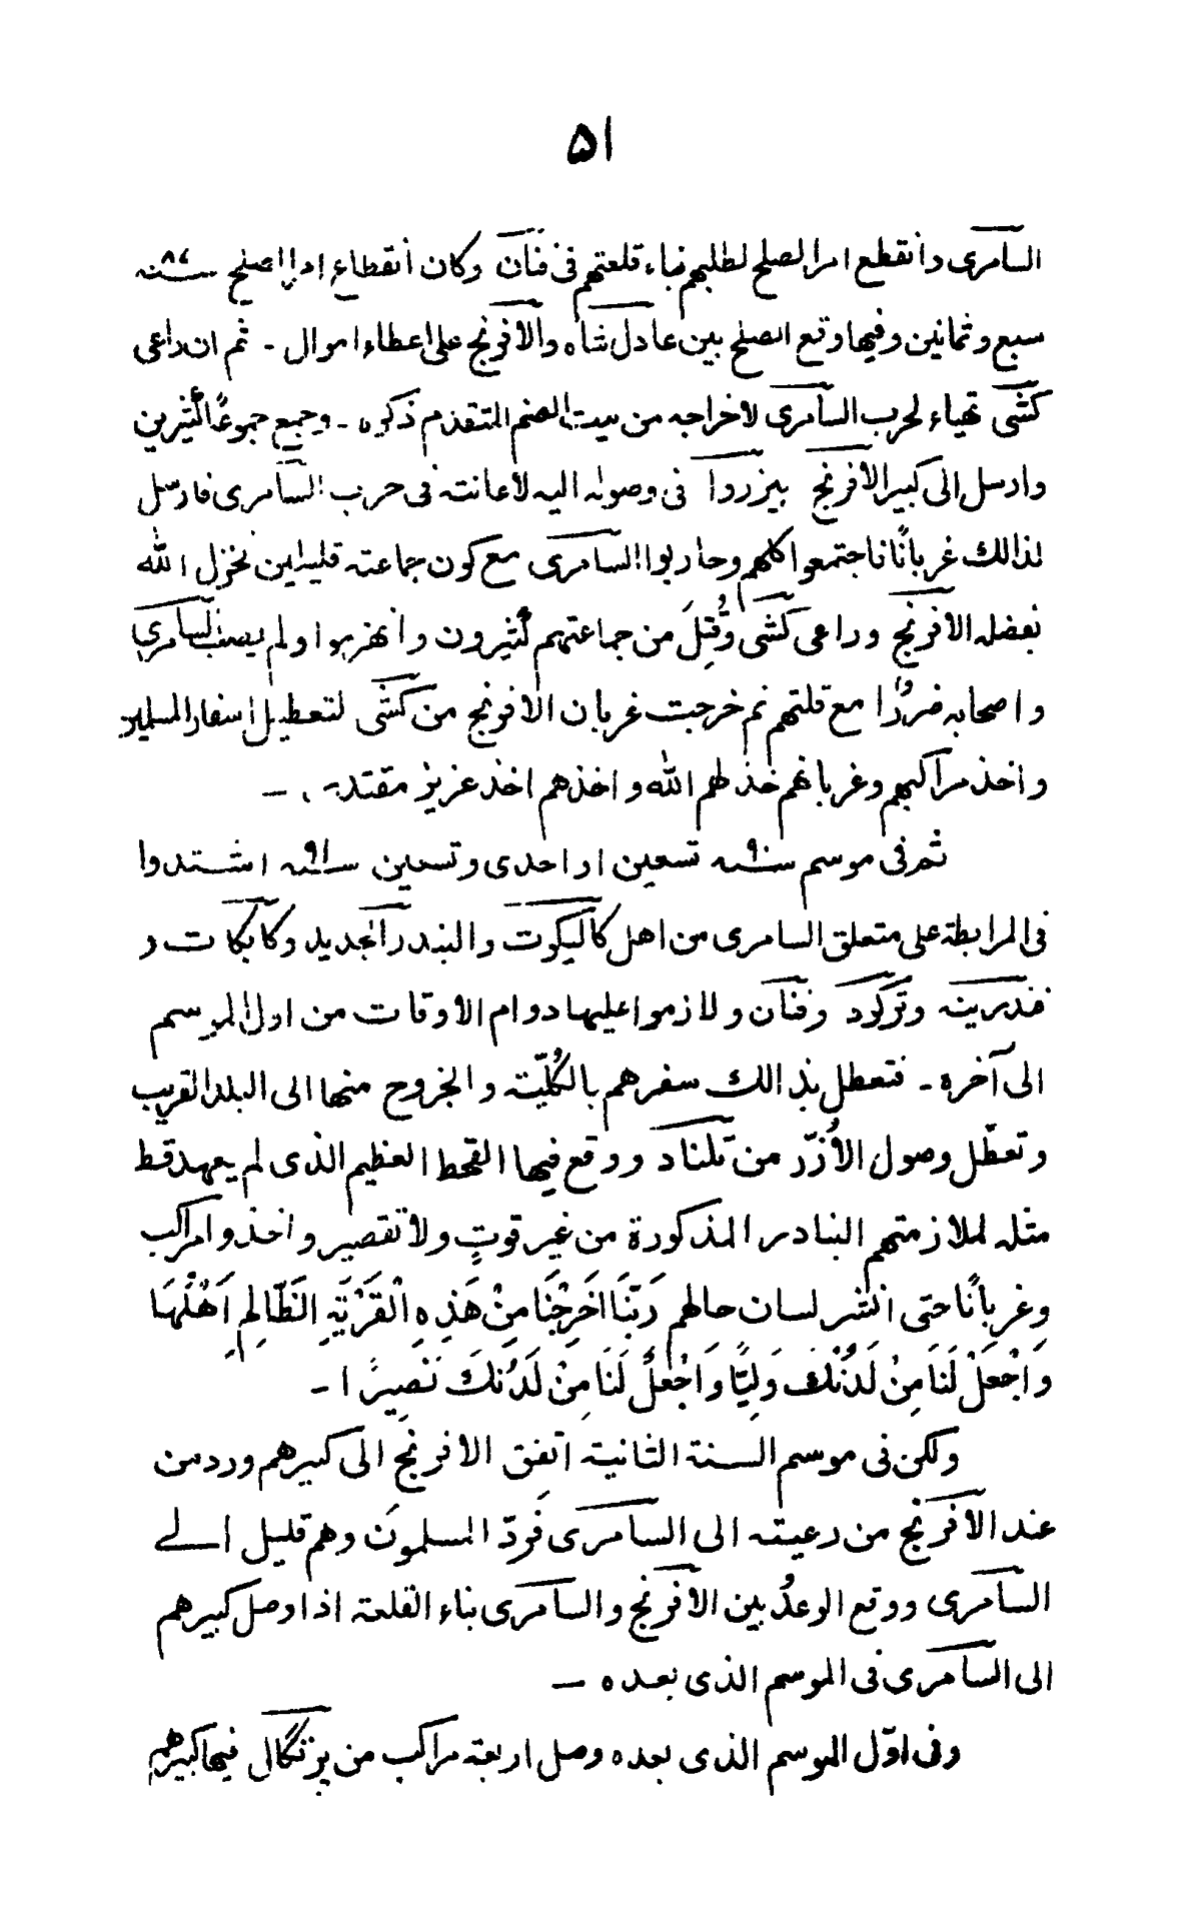 ۵۱
السامرى وانقطع امر الصلح لطلبهم بناء قلعتهم فى فنان وكان انقطاع امر الصلح سنه ٨٧
سبع وثمانين وفيها وقع الصلح بين عادل شاه والافرنج على اعطاء اموال - ثم ان راعى
كشى تهياء لحرب السامرى لاخراجه من بيت الصنم المتقدم ذكره - وجمع جموعًا كثيرين
وارسل الى كبير الافرنج بيزروا فى وصوله اليه لاعانته فى حرب السامرى فارسل
لذالك غربانًا فاجتمعوا كلهم وحاربوا السامرى مع كون جماعته قليلين فخزل الله
بفضله الافرنج وراعى كشى وقُتِلَ من جماعتهم كثيرون وانهزموا ولم يصب السامرى
واصحابه ضررًا مع قلتهم ثم خرجت غربان الافرنج من كشى لتعطيل اسفار المسلمين
واخذ مراكبهم وغربانهم خذلهم الله واخذهم اخذ عزيز مقتدر ، -
ثم فى موسم سنه ٩٠ تسعين او احدى وتسعين سنه ٩١ اشتدوا
فى المرابطة على متعلق السامرى من اهل كاليكوت والبندر الجديد وكابكات و
فندرينه وتركود وفنان ولازموا عليها دوام الاوقات من اول الموسم
الى آخره - فتعطل بذالك سفرهم بالكُلّيّته والخروج منها الى البلد القريب
وتعطّل وصول الأُزرّ من تلناد ووقع فيها القحط العظيم الذى لم يعهد قط
مثله لملازمتهم البنادر المذكورة من غير قوتٍ ولا تقصير واخذوا مراكب
وغربانًا حتى انشر لسان حالهم رَبَّنَا اَخرِجْنَا مِنْ هَذِهِ الْقَرْيَةِ الظَّالِمِ اَهْلُهَا
وَاجْعَلْ لَنَا مِنْ لَدُنْكَ وَلِيًّا وَاجْعَلْ لَنَا مِنْ لَدُنكَ نَصِيرًا -
ولكن فى موسم السنة الثانية اتفق الافرنج الى كبيرهم ورد من
عند الافرنج من رعيته الى السامرى فَردّ المسلمون وهم قليل الى
السامرى ووقع الوعدُ بين الافرنج والسامرى بناء القلعة اذا وصل كبيرهم
الى السامرى فى الموسم الذى بعده -
وفى اوّل الموسم الذى بعده وصل اربعة مراكب من پرتگال فيها كبيرهم